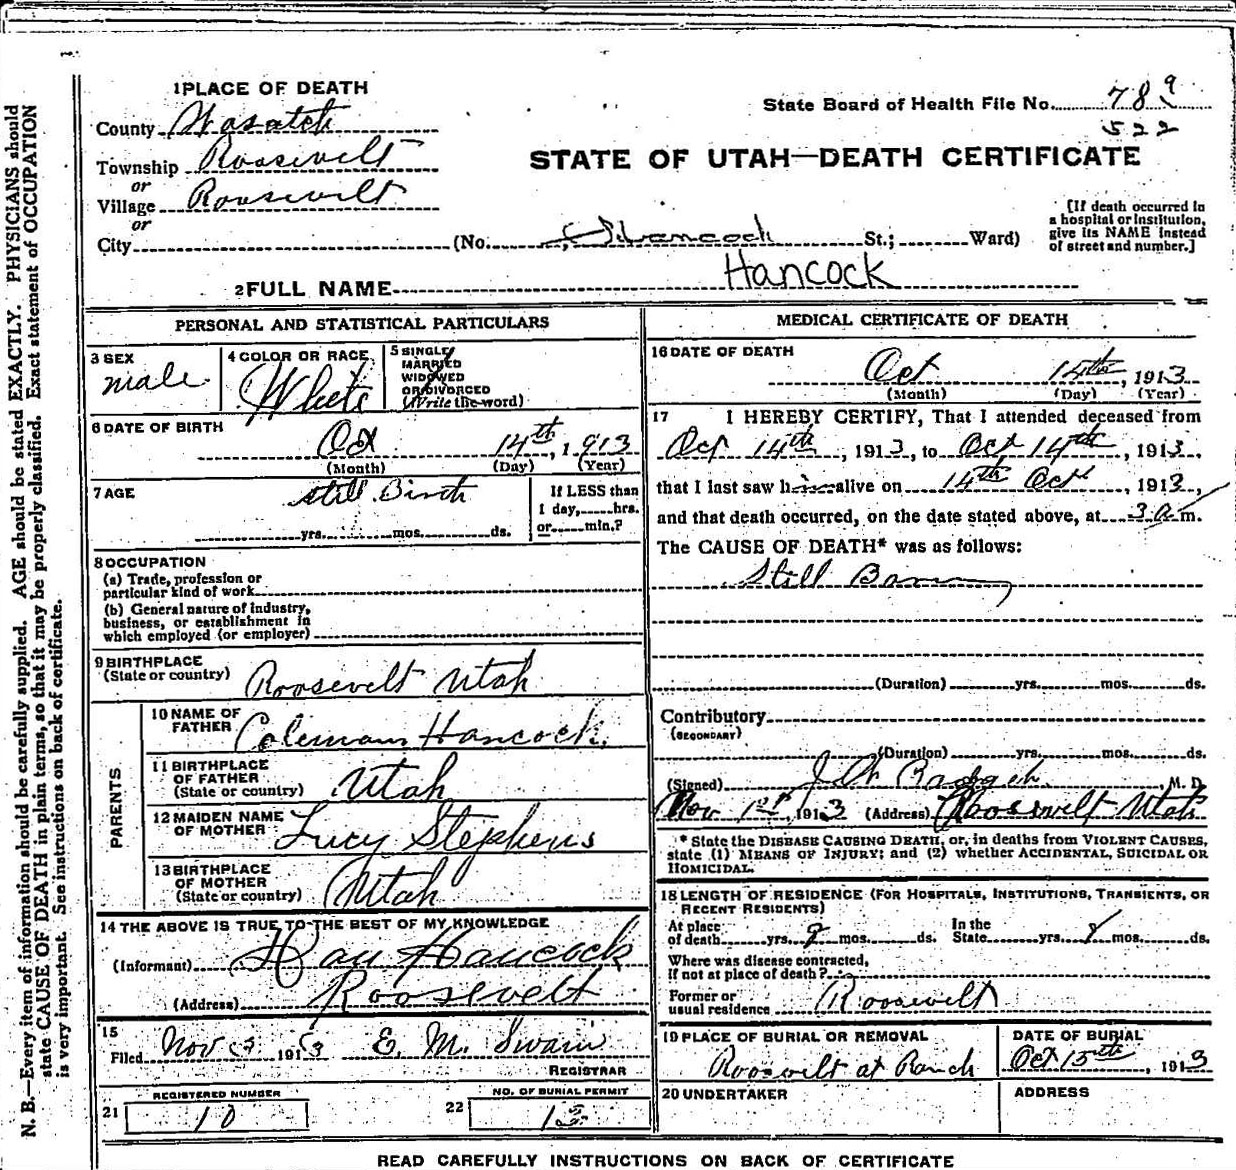 1 PLACE OF DEATH
County Wasatch
Township Roosevelt
or
Village Roosevelt
or
City (No. Hancock St.; Ward)
State Board of Health File No. 789
522
STATE OF UTAH—DEATH CERTIFICATE
[If death occurred in
a hospital or institution,
give its NAME instead
of street and number.]
2 FULL NAME Hancock
PERSONAL AND STATISTICAL PARTICULARS
3 SEX
male
4 COLOR OR RACE
White
5 SINGLE
MARRIED
WIDOWED
OR DIVORCED
(Write the word)
6 DATE OF BIRTH
Oct 14th, 1913
(Month) (Day) (Year)
7 AGE
Still Birth
yrs. mos. ds.
If LESS than
1 day, hrs.
or min.?
8 OCCUPATION
(a) Trade, profession or
particular kind of work
(b) General nature of industry,
business, or establishment in
which employed (or employer)
9 BIRTHPLACE
(State or country) Roosevelt Utah
PARENTS
10 NAME OF
FATHER Coleman Hancock.
11 BIRTHPLACE
OF FATHER
(State or country) Utah
12 MAIDEN NAME
OF MOTHER Lucy Stephens
13 BIRTHPLACE
OF MOTHER
(State or country) Utah
14 THE ABOVE IS TRUE TO THE BEST OF MY KNOWLEDGE
(Informant) Hancock
(Address) Roosevelt
15
Filed Nov 3 1913 E. M. Swain
REGISTRAR
REGISTERED NUMBER
21 10
NO. OF BURIAL PERMIT
22
MEDICAL CERTIFICATE OF DEATH
16 DATE OF DEATH
Oct 14th, 1913
(Month) (Day) (Year)
17 I HEREBY CERTIFY, That I attended deceased from
Oct 14th, 1913, to Oct 14th, 1913,
that I last saw h alive on 14th Oct, 1913,
and that death occurred, on the date stated above, at 3 a m.
The CAUSE OF DEATH* was as follows:
Still Born
(Duration) yrs. mos. ds.
Contributory
(SECONDARY)
(Duration) yrs. mos. ds.
(Signed) M. D.
Nov 1st, 1913 (Address) Roosevelt Utah
* State the DISEASE CAUSING DEATH, or, in deaths from VIOLENT CAUSES,
state (1) MEANS OF INJURY; and (2) whether ACCIDENTAL, SUICIDAL OR
HOMICIDAL.
18 LENGTH OF RESIDENCE (FOR HOSPITALS, INSTITUTIONS, TRANSIENTS, OR
RECENT RESIDENTS)
At place
of death yrs. mos. ds. In the
State yrs. mos. ds.
Where was disease contracted,
if not at place of death?
Former or
usual residence Roosevelt
19 PLACE OF BURIAL OR REMOVAL
Roosevelt at Ranch
DATE OF BURIAL
Oct 15th, 1913
20 UNDERTAKER
ADDRESS
READ CAREFULLY INSTRUCTIONS ON BACK OF CERTIFICATE
N. B.—Every item of information should be carefully supplied. AGE should be stated EXACTLY. PHYSICIANS should
state CAUSE OF DEATH in plain terms, so that it may be properly classified. Exact statement of OCCUPATION
is very important. See instructions on back of certificate.